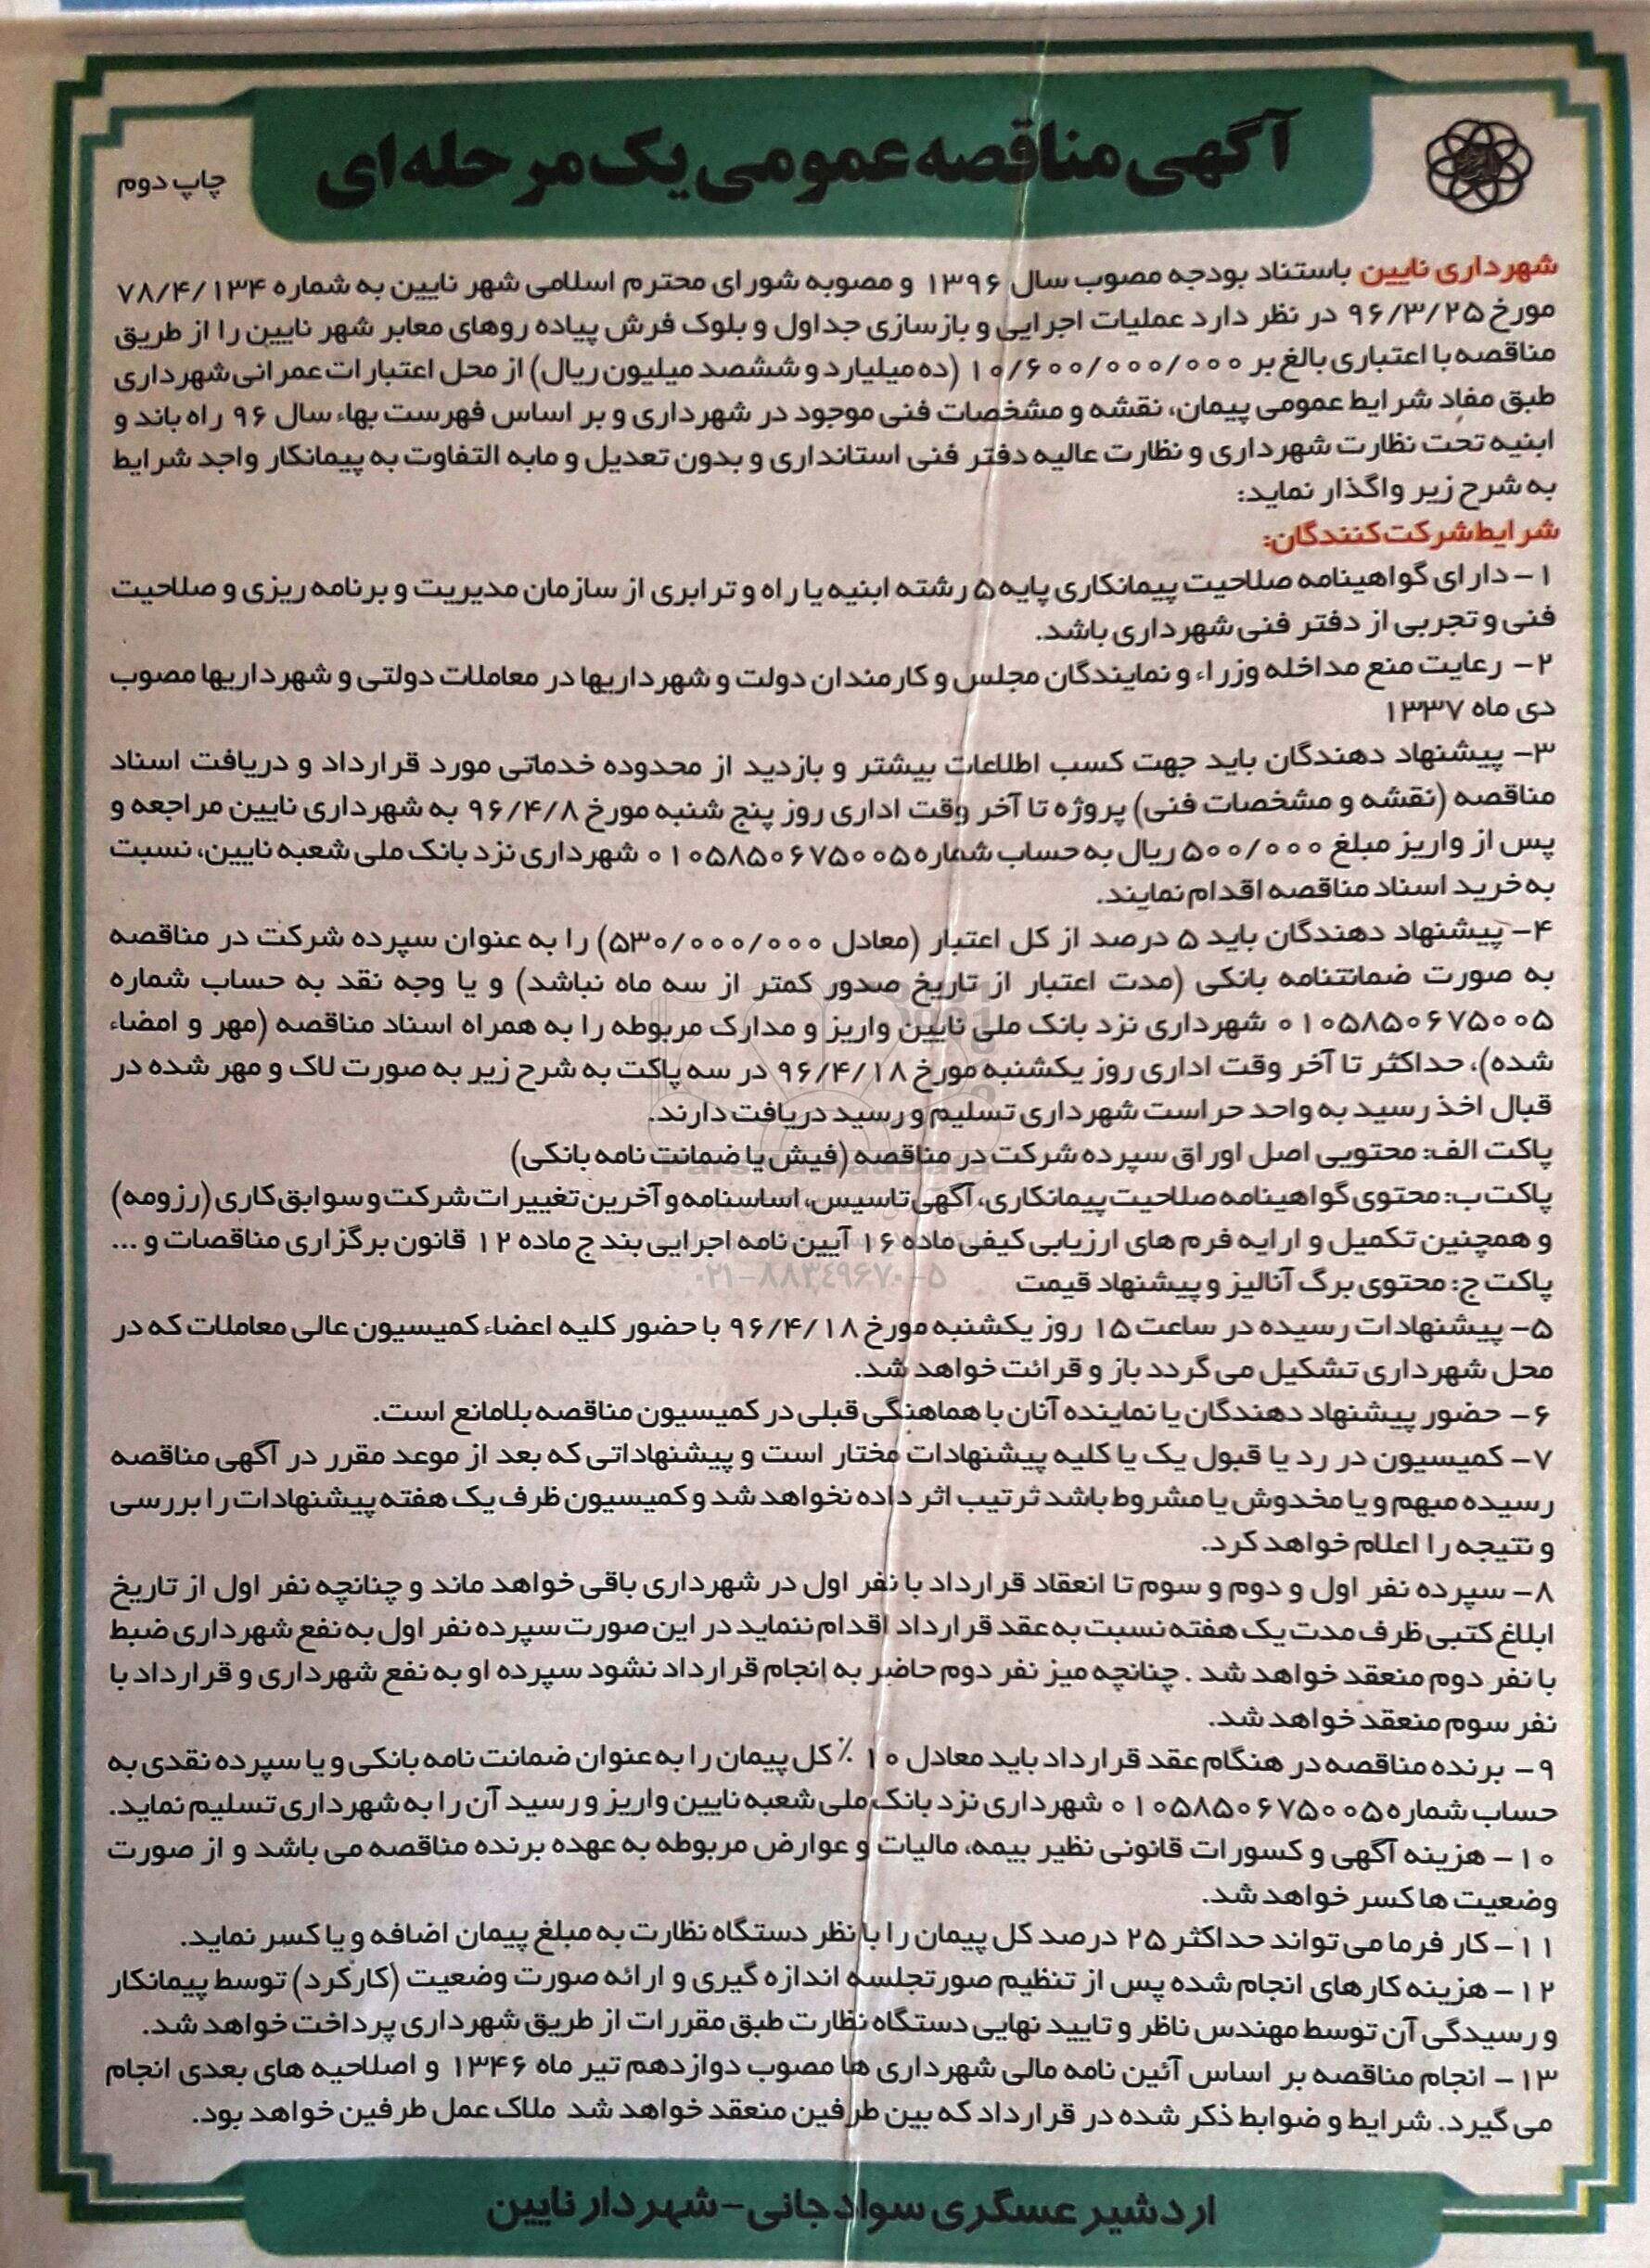 آگهی مناقصه عمومی یک مرحله‌ای
چاپ دوم
شهرداری نایین باستناد بودجه مصوب سال ۱۳۹۶ و مصوبه شورای محترم اسلامی شهر نایین به شماره ۷۸/۴/۱۳۴
مورخ ۹۶/۳/۲۵ در نظر دارد عملیات اجرایی و بازسازی جداول و بلوک فرش پیاده روهای معابر شهر نایین را از طریق
مناقصه با اعتباری بالغ بر ۱۰/۶۰۰/۰۰۰/۰۰۰ (ده میلیارد و ششصد میلیون ریال) از محل اعتبارات عمرانی شهرداری
طبق مفاد شرایط عمومی پیمان، نقشه و مشخصات فنی موجود در شهرداری و بر اساس فهرست بهاء سال ۹۶ راه باند و
ابنیه تحت نظارت شهرداری و نظارت عالیه دفتر فنی استانداری و بدون تعدیل و مابه التفاوت به پیمانکار واجد شرایط
به شرح زیر واگذار نماید:
شرایط شرکت کنندگان:
۱- دارای گواهینامه صلاحیت پیمانکاری پایه ۵ رشته ابنیه یا راه و ترابری از سازمان مدیریت و برنامه ریزی و صلاحیت
فنی و تجربی از دفتر فنی شهرداری باشد.
۲- رعایت منع مداخله وزراء و نمایندگان مجلس و کارمندان دولت و شهرداریها در معاملات دولتی و شهرداریها مصوب
دی ماه ۱۳۳۷
۳- پیشنهاد دهندگان باید جهت کسب اطلاعات بیشتر و بازدید از محدوده خدماتی مورد قرارداد و دریافت اسناد
مناقصه (نقشه و مشخصات فنی) پروژه تا آخر وقت اداری روز پنج شنبه مورخ ۹۶/۴/۸ به شهرداری نایین مراجعه و
پس از واریز مبلغ ۵۰۰/۰۰۰ ریال به حساب شماره ۰۱۰۵۸۵۰۶۷۵۰۰۵ شهرداری نزد بانک ملی شعبه نایین، نسبت
به خرید اسناد مناقصه اقدام نمایند.
۴- پیشنهاد دهندگان باید ۵ درصد از کل اعتبار (معادل ۵۳۰/۰۰۰/۰۰۰) را به عنوان سپرده شرکت در مناقصه
به صورت ضمانتنامه بانکی (مدت اعتبار از تاریخ صدور کمتر از سه ماه نباشد) و یا وجه نقد به حساب شماره
۰۱۰۵۸۵۰۶۷۵۰۰۵ شهرداری نزد بانک ملی نایین واریز و مدارک مربوطه را به همراه اسناد مناقصه (مهر و امضاء
شده)، حداکثر تا آخر وقت اداری روز یکشنبه مورخ ۹۶/۴/۱۸ در سه پاکت به شرح زیر به صورت لاک و مهر شده در
قبال اخذ رسید به واحد حراست شهرداری تسلیم و رسید دریافت دارند.
پاکت الف: محتویی اصل اوراق سپرده شرکت در مناقصه (فیش یا ضمانت نامه بانکی)
پاکت ب: محتوی گواهینامه صلاحیت پیمانکاری، آگهی تاسیس، اساسنامه و آخرین تغییرات شرکت و سوابق کاری (رزومه)
و همچنین تکمیل و ارایه فرم های ارزیابی کیفی ماده ۱۶ آیین نامه اجرایی بند ج ماده ۱۲ قانون برگزاری مناقصات و ...
۰۲۱-۸۸۳۴۹۶۷۰-۵
پاکت ج: محتوی برگ آنالیز و پیشنهاد قیمت
۵- پیشنهادات رسیده در ساعت ۱۵ روز یکشنبه مورخ ۹۶/۴/۱۸ با حضور کلیه اعضاء کمیسیون عالی معاملات که در
محل شهرداری تشکیل می گردد باز و قرائت خواهد شد.
۶- حضور پیشنهاد دهندگان یا نماینده آنان با هماهنگی قبلی در کمیسیون مناقصه بلامانع است.
۷- کمیسیون در رد یا قبول یک یا کلیه پیشنهادات مختار است و پیشنهاداتی که بعد از موعد مقرر در آگهی مناقصه
رسیده مبهم و یا مخدوش یا مشروط باشد ترتیب اثر داده نخواهد شد و کمیسیون ظرف یک هفته پیشنهادات را بررسی
و نتیجه را اعلام خواهد کرد.
۸- سپرده نفر اول و دوم و سوم تا انعقاد قرارداد با نفر اول در شهرداری باقی خواهد ماند و چنانچه نفر اول از تاریخ
ابلاغ کتبی ظرف مدت یک هفته نسبت به عقد قرارداد اقدام ننماید در این صورت سپرده نفر اول به نفع شهرداری ضبط
با نفر دوم منعقد خواهد شد . چنانچه میز نفر دوم حاضر به انجام قرارداد نشود سپرده او به نفع شهرداری و قرارداد با
نفر سوم منعقد خواهد شد.
۹- برنده مناقصه در هنگام عقد قرارداد باید معادل ۱۰٪ کل پیمان را به عنوان ضمانت نامه بانکی و یا سپرده نقدی به
حساب شماره ۰۱۰۵۸۵۰۶۷۵۰۰۵ شهرداری نزد بانک ملی شعبه نایین واریز و رسید آن را به شهرداری تسلیم نماید.
۱۰- هزینه آگهی و کسورات قانونی نظیر بیمه، مالیات و عوارض مربوطه به عهده برنده مناقصه می باشد و از صورت
وضعیت ها کسر خواهد شد.
۱۱- کار فرما می تواند حداکثر ۲۵ درصد کل پیمان را با نظر دستگاه نظارت به مبلغ پیمان اضافه و یا کسر نماید.
۱۲- هزینه کارهای انجام شده پس از تنظیم صورتجلسه اندازه گیری و ارائه صورت وضعیت (کارکرد) توسط پیمانکار
و رسیدگی آن توسط مهندس ناظر و تایید نهایی دستگاه نظارت طبق مقررات از طریق شهرداری پرداخت خواهد شد.
۱۳- انجام مناقصه بر اساس آئین نامه مالی شهرداری ها مصوب دوازدهم تیر ماه ۱۳۴۶ و اصلاحیه های بعدی انجام
می گیرد. شرایط و ضوابط ذکر شده در قرارداد که بین طرفین منعقد خواهد شد ملاک عمل طرفین خواهد بود.
اردشیر عسگری سوادجانی - شهردار نایین